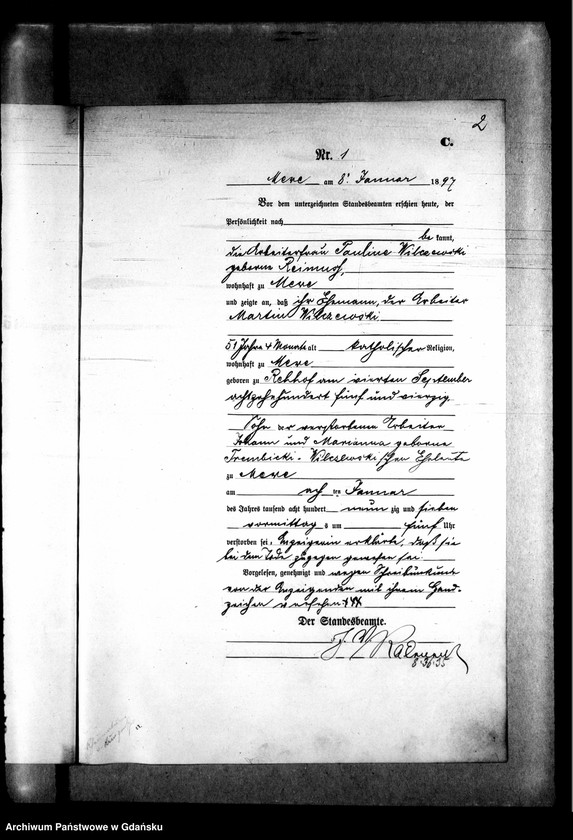 2
C.
Nr. 1
Mewe am 8ten Januar 1897
Vor dem unterzeichneten Standesbeamten erschien heute, der
Persönlichkeit nach
bekannt,
die Arbeiterfrau Pauline Wilczewski
geborne
wohnhaft zu Mewe
und zeigte an, daß ihr Ehemann, der Arbeiter
Martin Wilczewski
51 Jahre 4 Monate alt katholischer Religion,
wohnhaft zu Mewe
geboren zu Rehhof am vierten September
achtzehnhundert fünf und vierzig
Sohn der verstorbenen Arbeiter
Johann und Marianna geborne
Trembicki - Wilczewski'schen Eheleute
zu Mewe
am achten Januar
des Jahres tausend acht hundert neunzig und sieben
vormittags um fünf Uhr
verstorben sei, Anzeigerin erklärte, daß sie
bei dem Tode zugegen gewesen sei.
Vorgelesen, genehmigt und wegen Schreibunkunde
von der Anzeigenden mit ihrem Hand-
zeichen versehen +++
Der Standesbeamte.
Archiwum Państwowe w Gdańsku